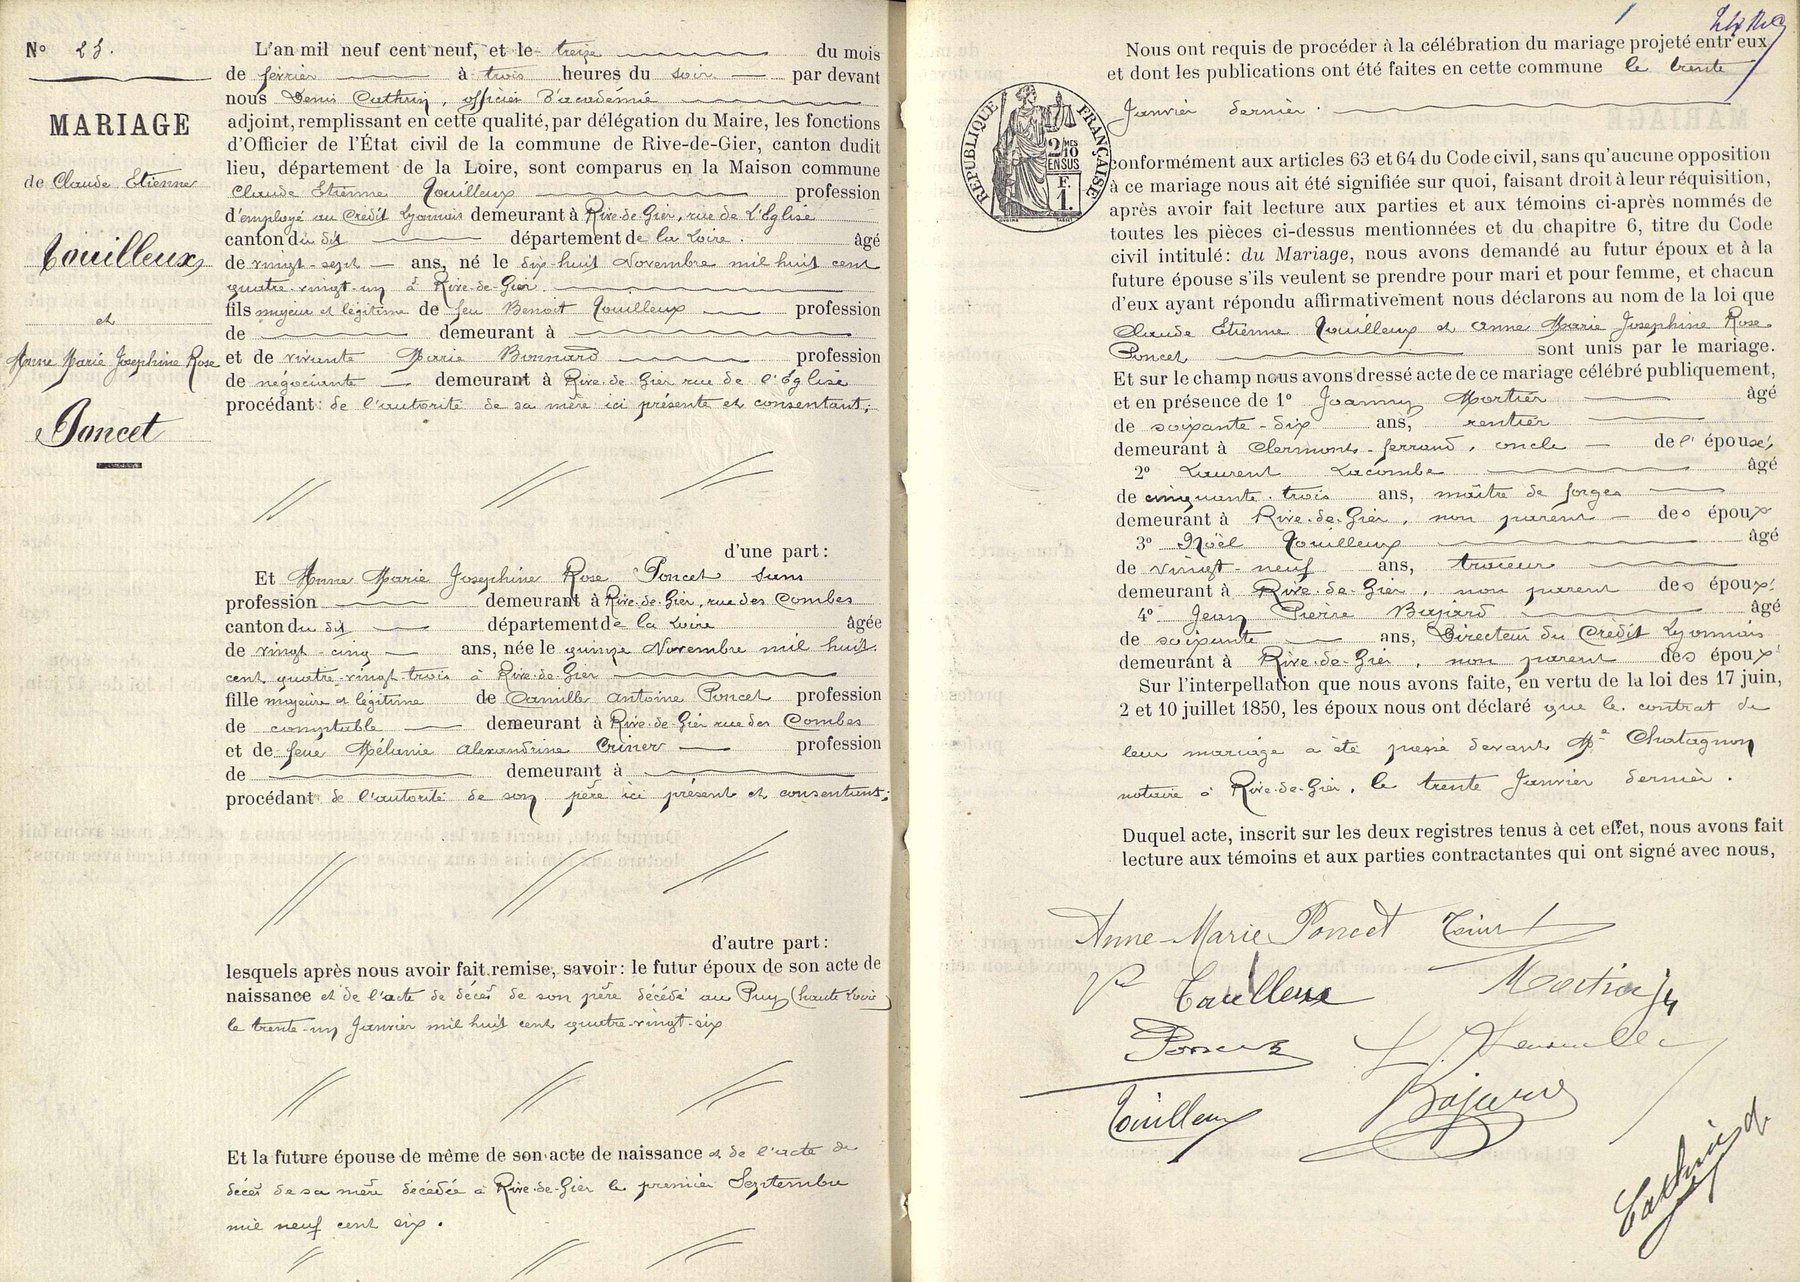 N° 23.
MARIAGE
de Claude Etienne
Touilleux
et
Anne Marie Josephine Rose
Poncet
L'an mil neuf cent neuf, et le treize du mois
de février à trois heures du soir par devant
nous Denis Cathrin, officier d'académie
adjoint, remplissant en cette qualité, par délégation du Maire, les fonctions
d'Officier de l'État civil de la commune de Rive-de-Gier, canton dudit
lieu, département de la Loire, sont comparus en la Maison commune
Claude Etienne Touilleux profession
d'employé au Crédit Lyonnais demeurant à Rive-de-Gier, rue de l'Eglise
canton du dit département de la Loire. âgé
de vingt-sept ans, né le dix-huit Novembre mil huit cent
quatre-vingt-un à Rive-de-Gier
fils majeur et légitime de feu Benoit Touilleux profession
de demeurant à
et de vivante Marie Bonnard profession
de négociante demeurant à Rive-de-Gier rue de l'Église
procédant de l'autorité de sa mère ici présente et consentant;
d'une part :
Et Anne Marie Josephine Rose Poncet sans
profession demeurant à Rive-de-Gier, rue des Combes
canton du dit département de la Loire âgée
de vingt-cinq ans, née le quinze Novembre mil huit
cent quatre-vingt-trois à Rive-de-Gier
fille majeure et légitime de Camille Antoine Poncet profession
de comptable demeurant à Rive-de-Gier rue des Combes
et de feue Mélanie Alexandrine Criner profession
de demeurant à
procédant de l'autorité de son père ici présent et consentant;
d'autre part :
lesquels après nous avoir fait remise, savoir : le futur époux de son acte de
naissance et de l'acte de décès de son père décédé au Puy (haute Loire)
le trente-un Janvier mil huit cent quatre-vingt-six
Et la future épouse de même de son acte de naissance et de l'acte de
décès de sa mère décédée à Rive-de-Gier le premier Septembre
mil neuf cent six.
Nous ont requis de procéder à la célébration du mariage projeté entr'eux
et dont les publications ont été faites en cette commune le trente
Janvier dernier.
RÉPUBLIQUE FRANÇAISE
2 MES 10 EN SUS
F 1.
conformément aux articles 63 et 64 du Code civil, sans qu'aucune opposition
à ce mariage nous ait été signifiée sur quoi, faisant droit à leur réquisition,
après avoir fait lecture aux parties et aux témoins ci-après nommés de
toutes les pièces ci-dessus mentionnées et du chapitre 6, titre du Code
civil intitulé : du Mariage, nous avons demandé au futur époux et à la
future épouse s'ils veulent se prendre pour mari et pour femme, et chacun
d'eux ayant répondu affirmativement nous déclarons au nom de la loi que
Claude Etienne Touilleux et Anne Marie Josephine Rose
Poncet sont unis par le mariage.
Et sur le champ nous avons dressé acte de ce mariage célébré publiquement,
et en présence de 1° Joanny Mortier âgé
de soixante-dix ans, rentier
demeurant à Clermont-ferrand, oncle de l'épouse;
2° Laurent Lacombe âgé
de cinquante-trois ans, maître de forges
demeurant à Rive-de-Gier, non parent des époux
3° Noël Touilleux âgé
de vingt-neuf ans, traceur
demeurant à Rive-de-Gier, non parent des époux;
4° Jean Pierre Bajard âgé
de soixante ans, Directeur du Credit Lyonnais
demeurant à Rive-de-Gier, non parent des époux
Sur l'interpellation que nous avons faite, en vertu de la loi des 17 juin,
2 et 10 juillet 1850, les époux nous ont déclaré que le contrat de
leur mariage a été passé devant Me Chatagnon
notaire à Rive-de-Gier, le trente Janvier dernier.
Duquel acte, inscrit sur les deux registres tenus à cet effet, nous avons fait
lecture aux témoins et aux parties contractantes qui ont signé avec nous,
Anne-Marie Poncet
Ve Touilleux
Poncet
Touilleux
Bajard
Cathrin